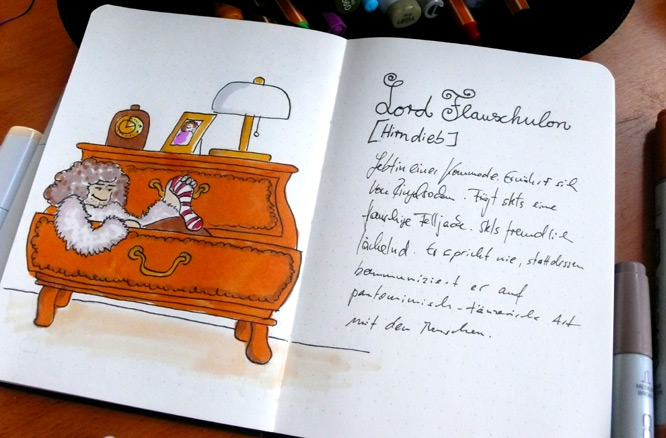 Lord Flauschulon
[Hirndieb]
Lebt in einer Kommode. Ernährt sich
von Ringelsocken. Trägt stets eine
flauschige Felljacke. Stets freundlich
lächelnd. Er spricht nie, stattdessen
kommuniziert er auf
pantomimisch-tänzerische Art
mit den Menschen.